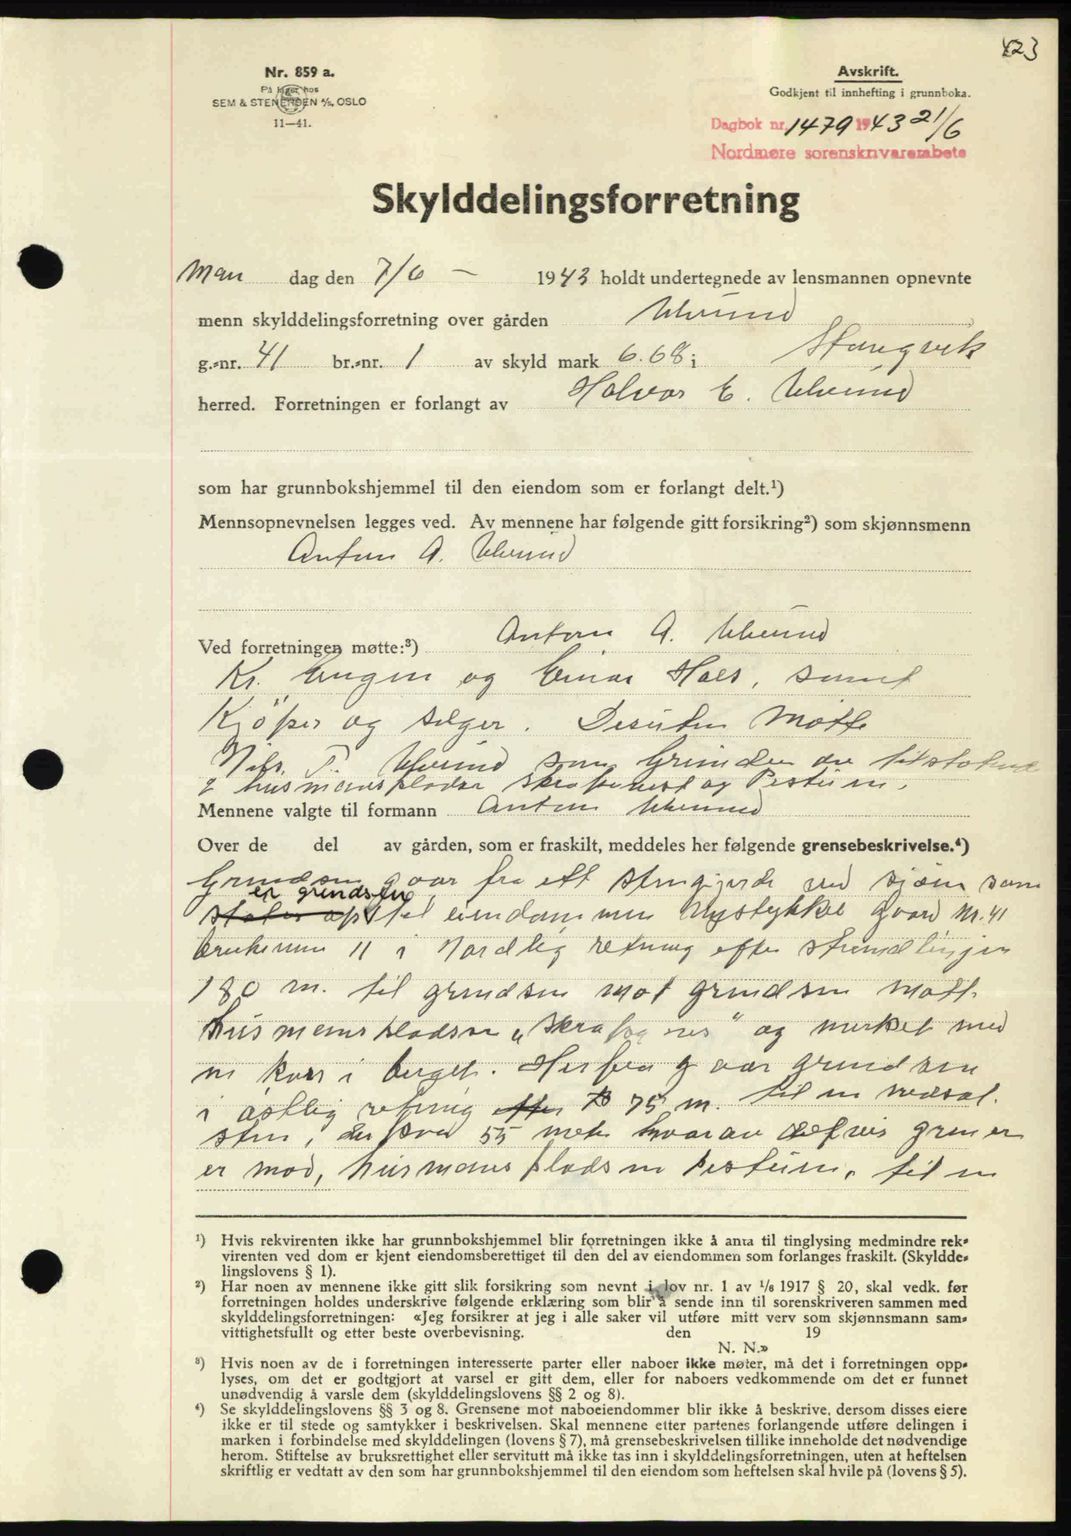 423
Nr. 859 a.
På lager hos
SEM & STENERSEN A/S, OSLO
11—41.
Avskrift.
Godkjent til innhefting i grunnboka.
Dagbok nr. 1479 1943 21/6
Nordmøre sorenskrivarembete
Skylddelingsforretning
Man dag den 7/6 — 1943 holdt undertegnede av lensmannen opnevnte
menn skylddelingsforretning over gården Ulvund
g.-nr. 41 br.-nr. 1 av skyld mark 6.68 i Stangvik
herred. Forretningen er forlangt av Halvor E. Ulvund
som har grunnbokshjemmel til den eiendom som er forlangt delt.¹)
Mennsopnevnelsen legges ved. Av mennene har følgende gitt forsikring²) som skjønnsmenn
Anton A. Ulvund
Ved forretningen møtte:³) Anton A. Ulvund
Kr. Engen og Einar Hals, samt
Kjöper og selger. Desuten møtte
Nils T. Ulvund som Grunden er tilstøtende
2 husmanspladser og Pestuen.
Mennene valgte til formann Anton Ulvund
Over de del av gården, som er fraskilt, meddeles her følgende grensebeskrivelse.⁴)
Grendsen gaar fra ett stengjerde ved sjøen som
er grendsen
til eiendommen Nystykket gaard Nr. 41
bruksnum 11 i Nordlig retning efter strandlinjen
180 m. til grendsen mot grendsen mott
husmanspladsen og merket med
en kors i berget. Herfra gaar grendsen
i østlig retning efter 75 m. til en nedsat
sten, derfra 55 meter hvorav delvis grensen
er mod, husmanspladsen Pestuen, til en
¹) Hvis rekvirenten ikke har grunnbokshjemmel blir forretningen ikke å anta til tinglysing medmindre rek-
virenten ved dom er kjent eiendomsberettiget til den del av eiendommen som forlanges fraskilt. (Skyldde-
lingslovens § 1).
²) Har noen av mennene ikke gitt slik forsikring som nevnt i lov nr. 1 av 1/6 1917 § 20, skal vedk. før
forretningen holdes underskrive følgende erklæring som blir å sende inn til sorenskriveren sammen med
skylddelingsforretningen: «Jeg forsikrer at jeg i alle saker vil utføre mitt verv som skjønnsmann sam-
vittighetsfullt og etter beste overbevisning. den 19
N. N.»
³) Hvis noen av de i forretningen interesserte parter eller naboer ikke møter, må det i forretningen opp-
lyses, om det er godtgjort at varsel er gitt dem, eller for naboers vedkommende om det er funnet
unødvendig å varsle dem (skylddelingslovens §§ 2 og 8).
⁴) Se skylddelingslovens §§ 3 og 8. Grensene mot naboeiendommer blir ikke å beskrive, dersom disses eiere
ikke er til stede og samtykker i beskrivelsen. Skal mennene etter partenes forlangende utføre delingen i
marken i forbindelse med skylddelingen (lovens § 7), må grensebeskrivelsen tillike inneholde det nødvendige
herom. Stiftelse av bruksrettighet eller servitutt må ikke tas inn i skylddelingsforretningen, uten at heftelsen
skriftlig er vedtatt av den som har grunnbokshjemmel til den eiendom som heftelsen skal hvile på (lovens § 5).